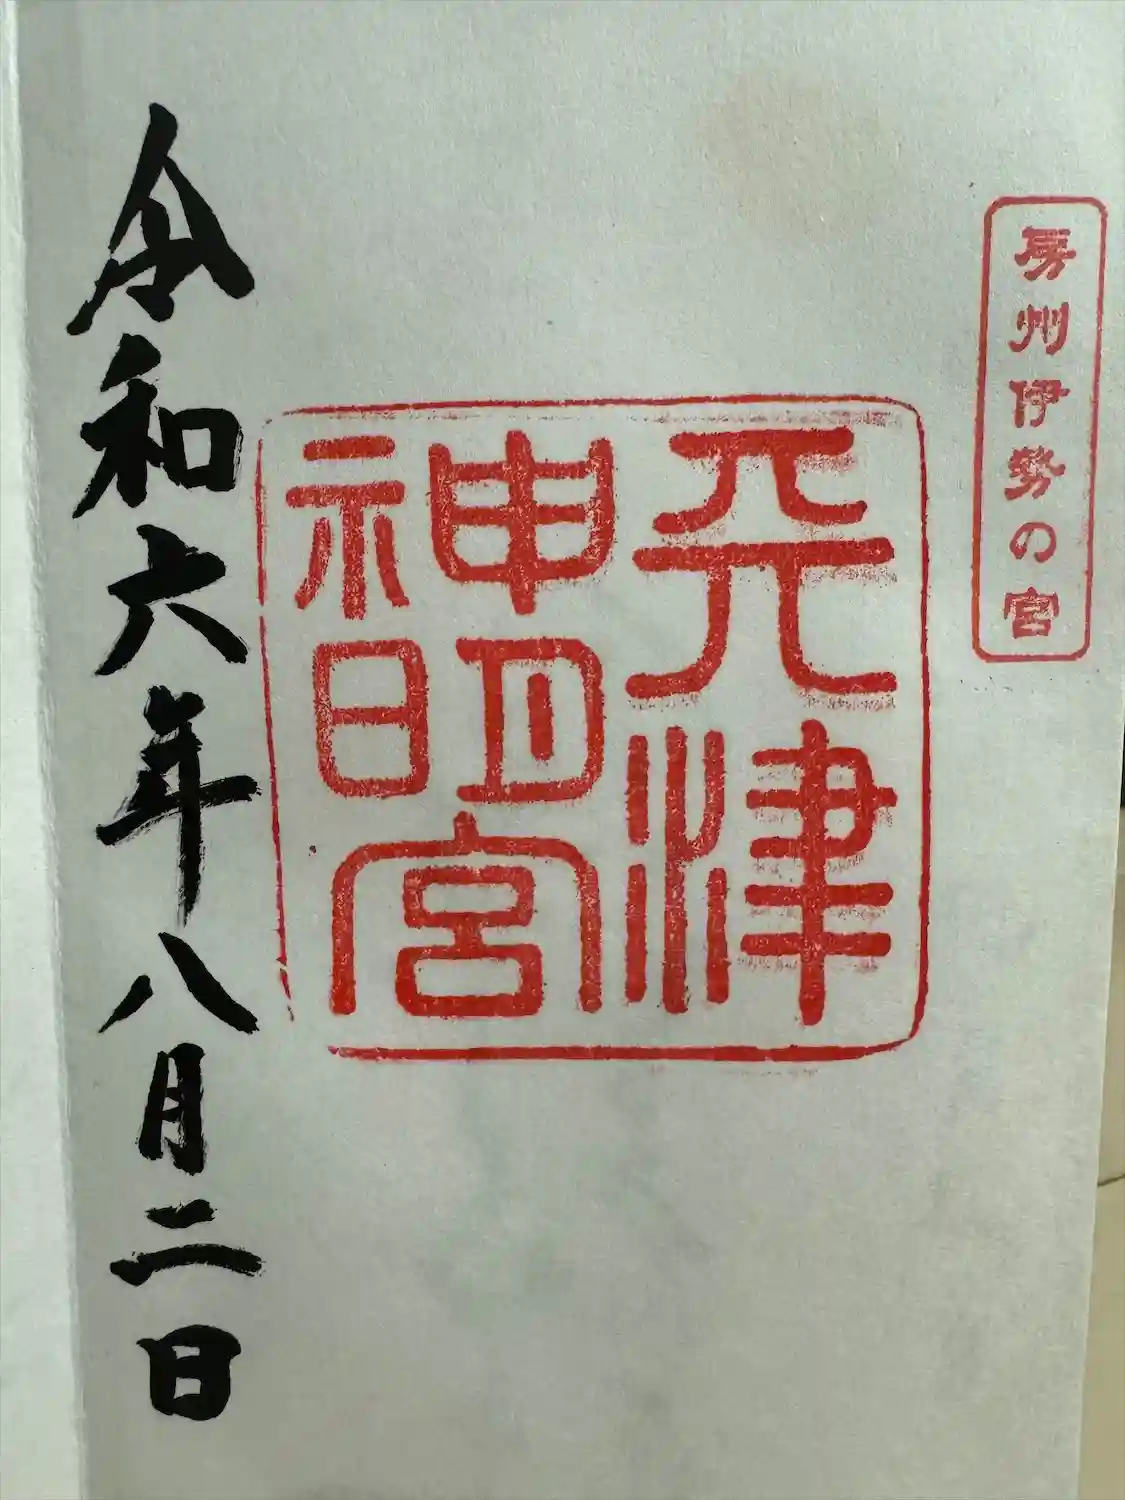 房州伊勢の宮
天津
神明宮
令和六年八月二日